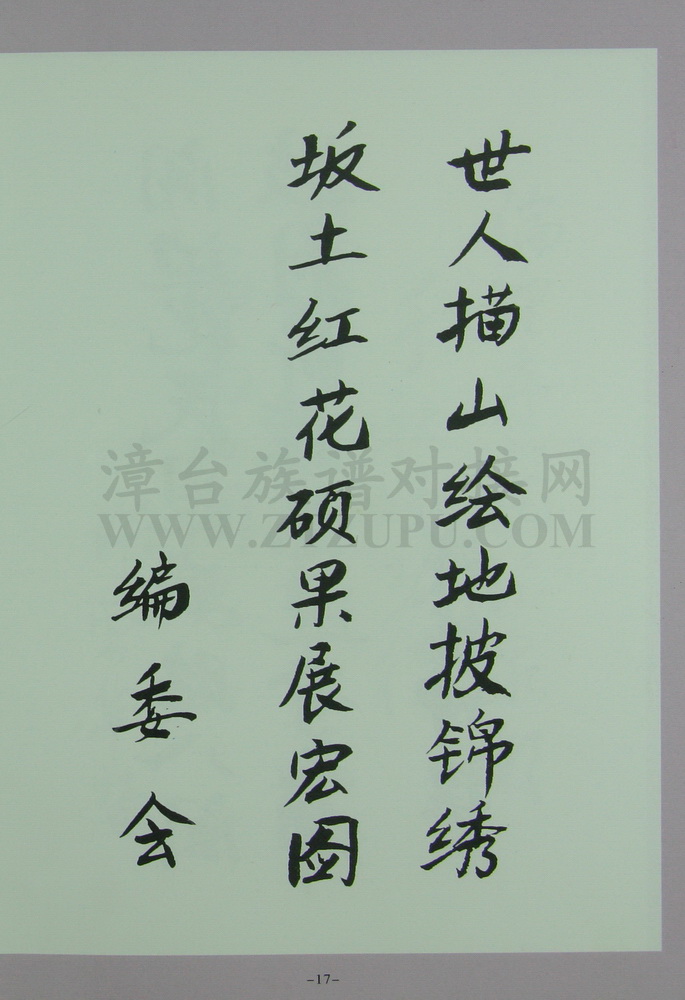 世人描山绘地披锦绣
坂土红花硕果展宏图
编委会
漳台族谱对接网
WWW.ZTZUPU.COM
-17-